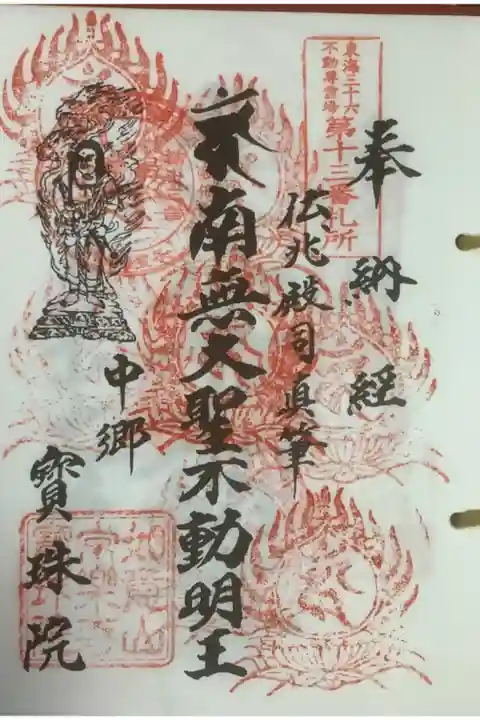 東海三十六
不動尊霊場
第十三番札所
奉納経
兆殿司真筆
南無大聖不動明王
中郷
寳珠院